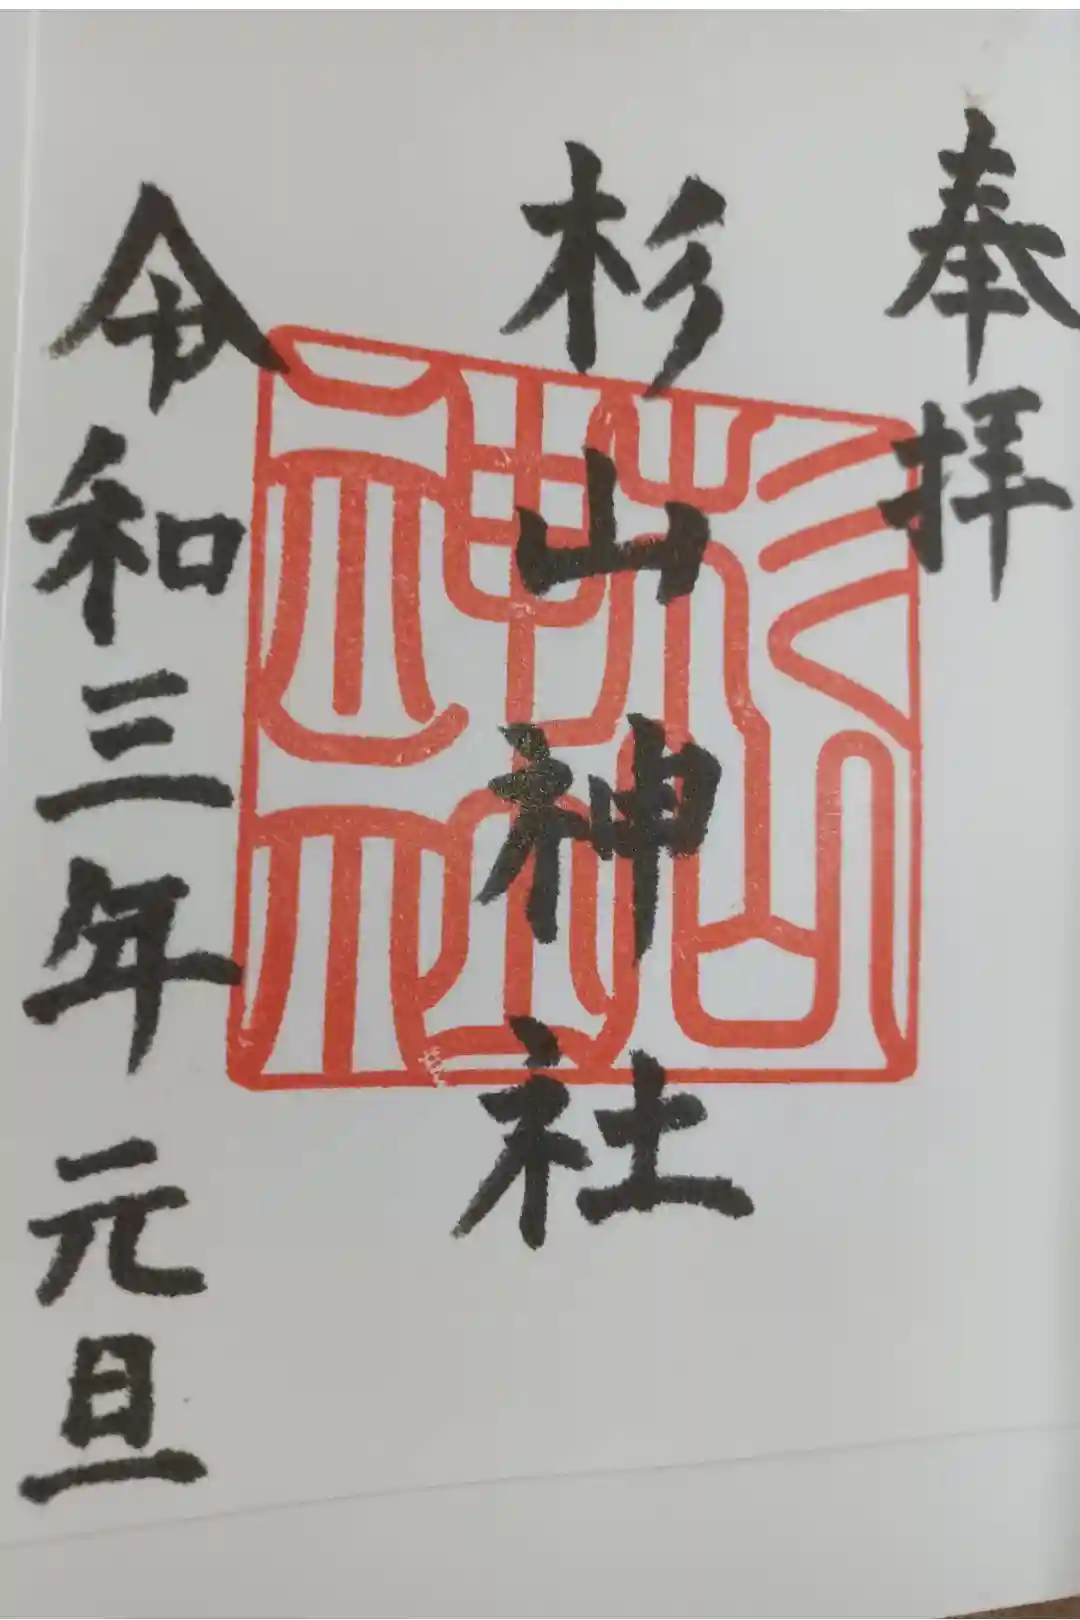 奉拝
杉山神社
杉山神社
令和三年元旦